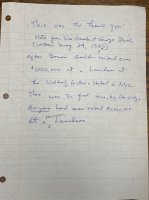 This was the "Thank you"
note from Vice President George Bush
(written May 29, 1986)
after Bonnie Sells raised over
$1,000,000 at a Luncheon at
The Waldorf Astoria Hotel in NYC
This was the first time, by the way,
anyone had ever raised $1,000,000
at a Luncheon